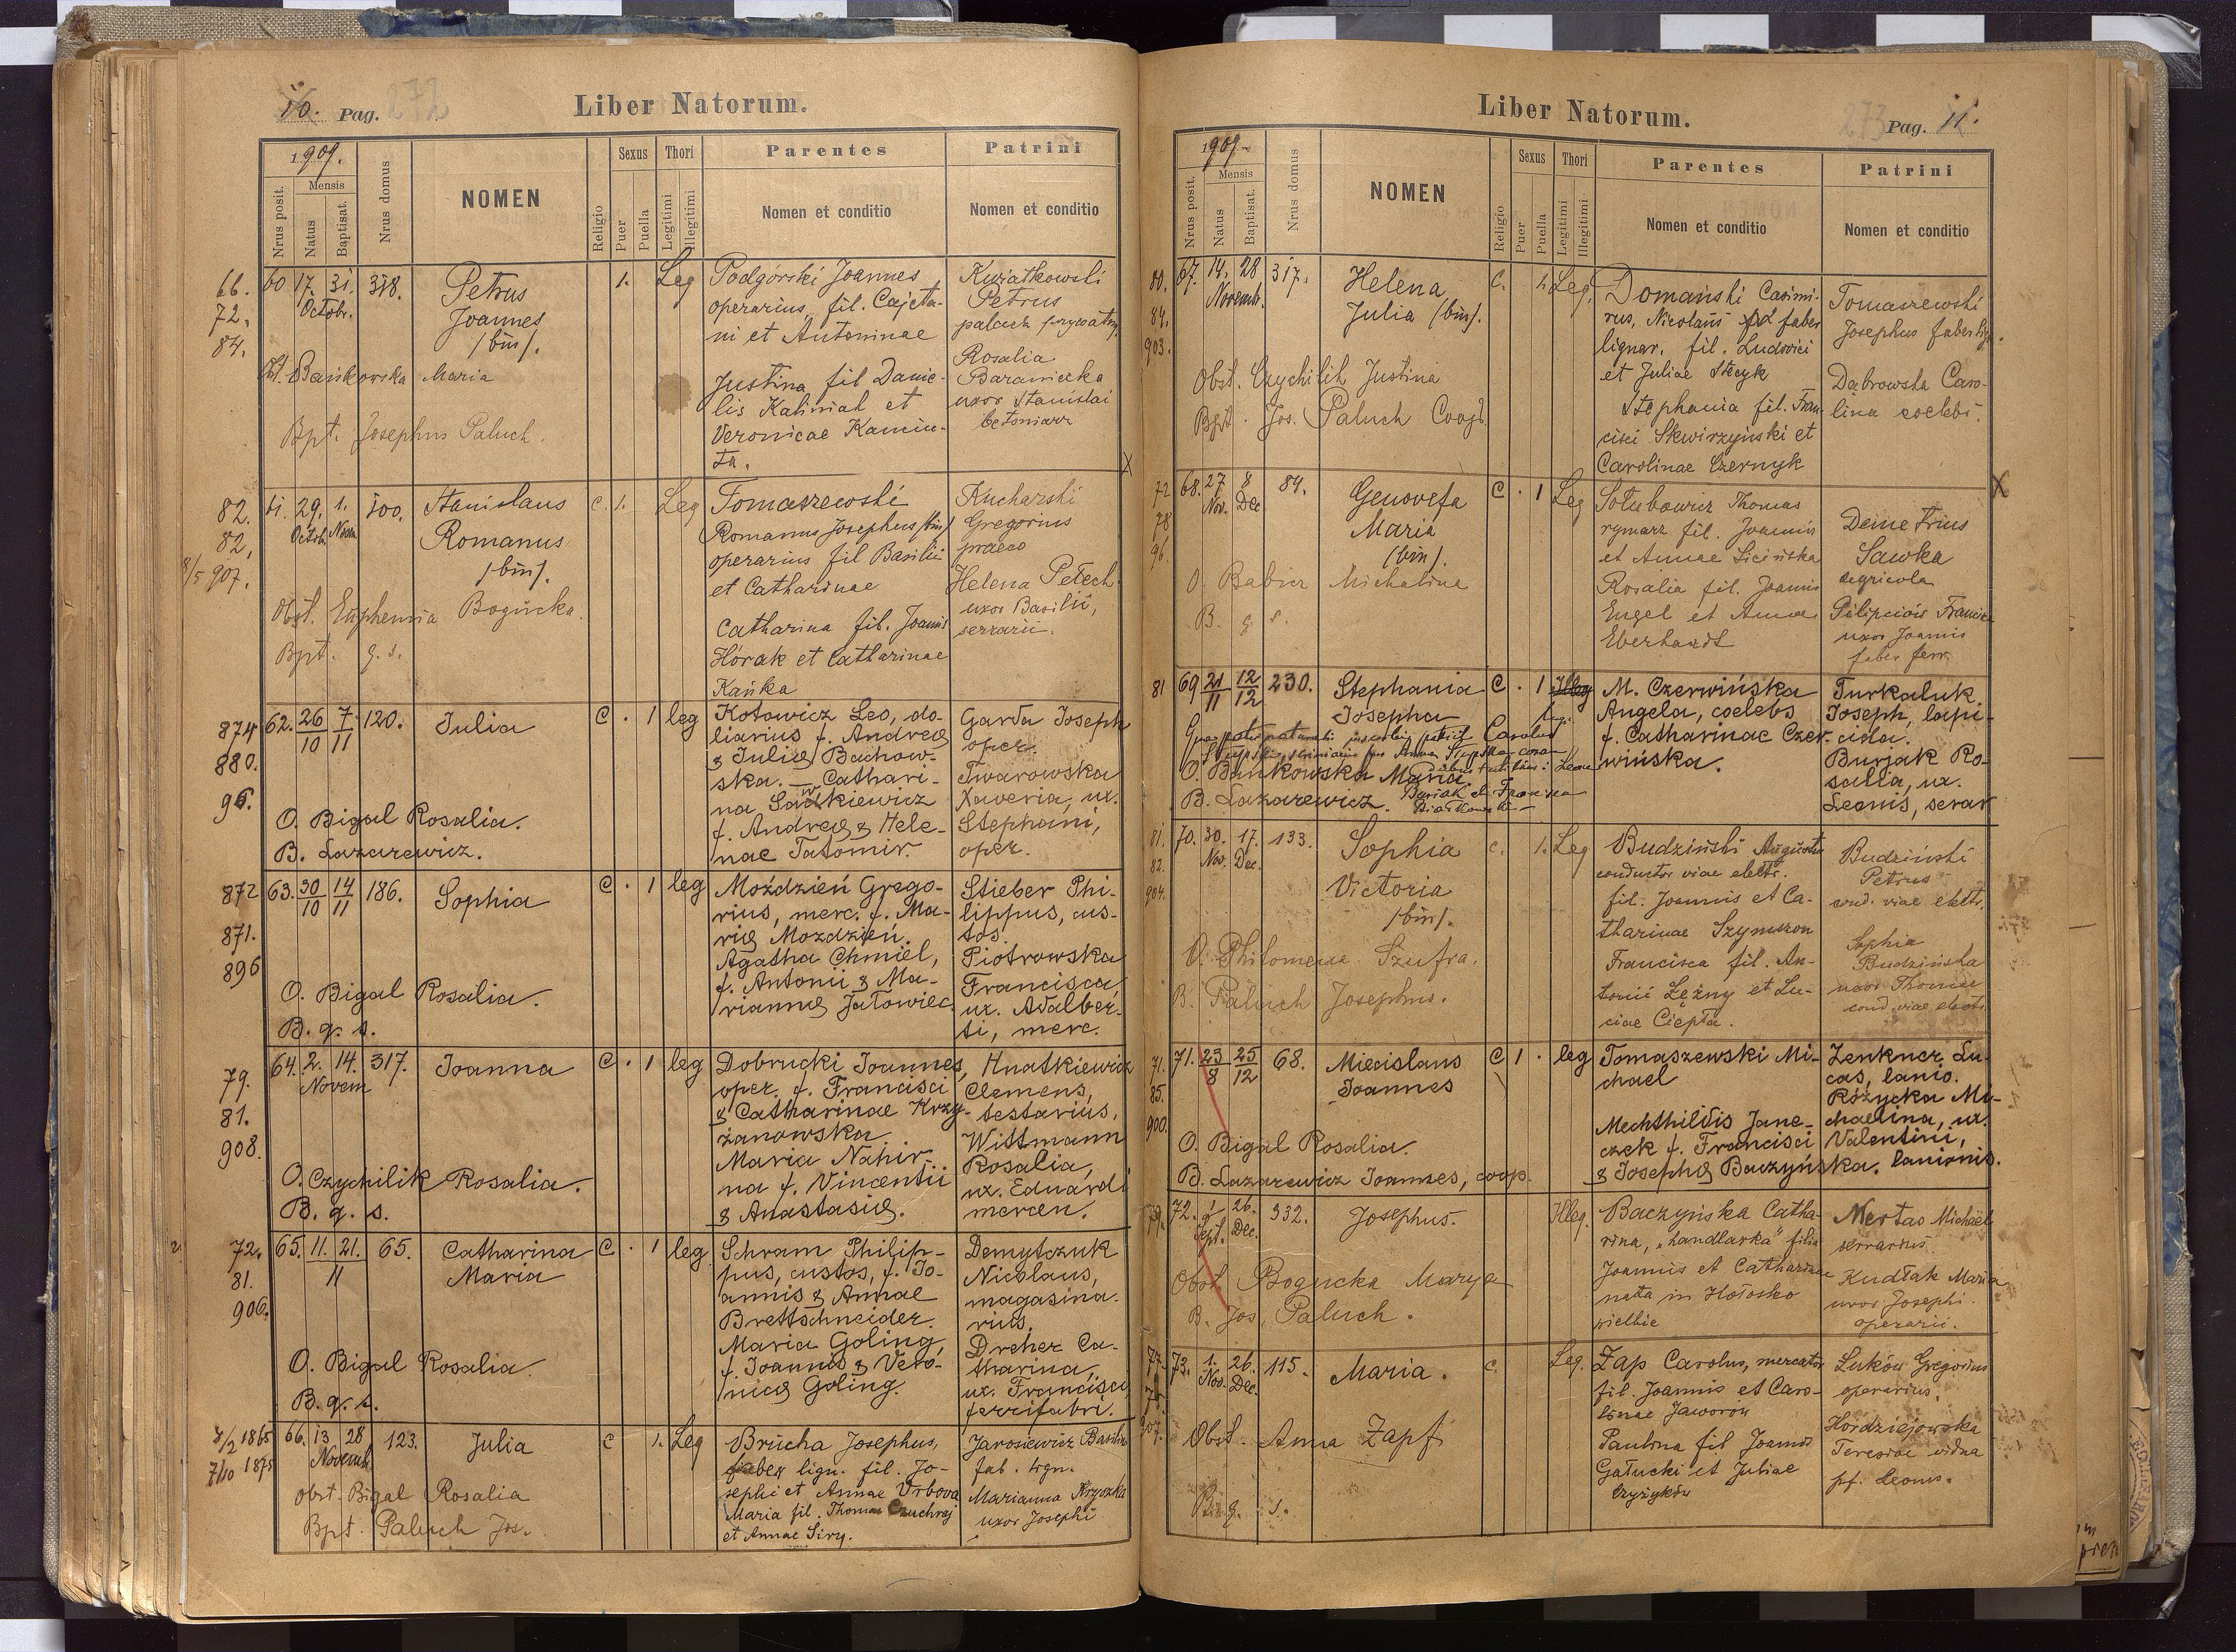 10. Pag. 272
Liber Natorum.
1909.
Nrus posit.
Mensis
Natus
Baptisat.
Nrus domus
NOMEN
Religio
Sexus
Puer
Puella
Thori
Legitimi
Illegitimi
Parentes
Nomen et conditio
Patrini
Nomen et conditio
66.
72.
84.
60 17. 31. 318.
Octobr.
Petrus
Joannes
/bin/.
1. Leg
Obst. Bańkowska Maria
Bpt. Josephus Paluch.
Podgórski Joannes
operarius, fil. Cajeta-
ni et Antoninae
Justina fil Danie-
lis Kaliniak et
Veronicae Kamin-
ta.
Kwiatkowski
Petrus
palacz prywatny
Rosalia
Baraniecka
uxor Stanislai
betoniarz
82.
82.
8/5 907.
61. 29. 1. 500.
Octob. Novem
Stanislaus
Romanus
/bin/.
c. 1. Leg
Obst. Euphemia Bogucka.
Bpt. q. s.
Tomaszewski
Romanus Josephus /bin/
operarius fil Basilii
et Catharinae
Catharina fil. Joannis
Horak et Catharinae
Kańka
Kucharski
Gregorius
praeco
Helena Petech
uxor Basilii,
serrarii.
874
880.
96.
62. 26/10 7/11 120. Julia c . 1 leg
O. Bigal Rosalia.
B. Lazarewicz.
Kotowicz Leo, do-
liarius f. Andreæ
& Juliæ Bachow-
ska. — Cathari-
na Sawkiewicz
f. Andreæ & Hele-
nae Tatomir.
Garda Joseph
oper.
Twarowska
Xaveria, ux.
Stephani,
oper.
872
871.
896
63. 30/10 14/11 186. Sophia c . 1 leg
O. Bigal Rosalia.
B. q. s.
Moździeń Grego-
rius, merc. f. Ma-
riæ Mozdzień.
Agatha Chmiel,
f. Antonii & Ma-
riannæ Jałowiec
Stieber Phi-
lippus, cus-
tos.
Piotrowska
Francisca
ux. Adalber-
ti, merc.
79.
81.
908.
64. 2. 14. 317. Joanna c . 1 leg
Novem
O. Czychilik Rosalia.
B. q. s.
Dobrucki Joannes,
oper. f. Francisci
& Catharinae Krzy-
żanowska
Maria Nahir-
na f. Vincentii
& Anastasiæ.
Hnatkiewicz
Clemens,
testarius,
Wittmann
Rosalia,
ux. Eduardi
mercen.
72.
81.
906.
65. 11. 21. 65. Catharina c . 1 leg
11
Maria
O. Bigal Rosalia.
B. q. s.
Schram Philip-
pus, custos, f. Jo-
annis & Annae
Brettschneider.
Maria Goling,
f. Joannis & Vero-
nicæ Goling.
Demytczuk
Nicolaus,
magasina-
rius.
Dreher Ca-
tharina,
ux. Francisci
ferrifabri.
4/2 1865
7/10 1875
66. 13 28 123. Julia c 1. Leg
Novemb.
obst. Bigal Rosalia
Bpt. Paluch Jos.
Brucha Josephus,
faber lign. fil. Jo-
sephi et Annae Vrbova
Maria fil. Thomae Czuchraj
et Annae Siry.
Jarosiewicz Basilius
fab. lign.
Marianna Kryszka
uxor Josephi
Liber Natorum.
273 Pag. 11.
1909
Nrus posit.
Mensis
Natus
Baptisat.
Nrus domus
NOMEN
Religio
Sexus
Puer
Puella
Thori
Legitimi
Illegitimi
Parentes
Nomen et conditio
Patrini
Nomen et conditio
80.
84.
903.
67. 14. 28 317. Helena c. 1. Leg.
Novemb.
Julia /bin/.
Obst. Czychilik Justina
Bpt. Jos. Paluch Coop.
Domański Casimi-
rus, Nicolaus faber
lignar. fil. Ludovici
et Juliae Stecyk
Stephania fil. Fran-
cisci Skwirzyński et
Carolinae Czernyk
Tomaszewski
Josephus faber lig.
Dąbrowska Caro-
lina coelebs.
72
78
96.
68. 27 8 84. Genovefa c . 1 Leg
Nov. Dec
Maria
/bin/.
O. Babicz Michalina
B. q. s.
Sołubowicz Thomas
rymarz fil. Joannis
et Annae Sicińska
Rosalia fil. Joannis
Engel et Annae
Eberhardt
Demetrius
Sawka
agricola
Pilipciów Francisca
uxor Joannis
faber ferr.
81
69 21/11 12/12 230. Stephania c . 1 Illeg
Josepha
O. Bańkowska Maria
B. Lazarewicz.
M. Czerwińska
Angela, coelebs
f. Catharinae Czer-
wińska.
Turkaluk
Joseph, lapi-
cida.
Burjak Ro-
salia, ux.
Leonis, serar
81.
82.
904.
70. 30. 17. 133. Sophia c. 1. Leg
Nov. Dec.
Victoria
/bin/.
O. Philomena Szufra.
B. Paluch Josephus.
Budziński Augustus
conductor viae elektr.
fil. Joannis et Ca-
tharinae Szymszon
Francisca fil. An-
tonii Łężny et Lu-
ciae Ciepła.
Budziński
Petrus
cond. viae elektr.
Sophia
Budzińska
uxor Thomae
cond. viae elektr.
71.
85.
900.
71. 23/8 25/12 68. Miecislaus c 1 . leg
Joannes
O. Bigal Rosalia.
B. Lazarewicz Joannes, coop.
Tomaszewski Mi-
chael
Mechthildis Jane-
czek f. Francisci
& Josephæ Baczyńska.
Zenkner Lu-
cas, lanio.
Różycka Mi-
chaelina, ux.
Valentini,
lanionis.
79.
72. 1 26. 332. Josephus. Illeg.
Sept. Dec.
Obst Bogucka Marya
B. Jos. Paluch.
Baczyńska Catha-
rina, „handlarka" filia
Joannis et Catharinae
nata in Hołosko
wielkie
Mertas Michael
serrarius.
Kudłak Maria
uxor Josephi
operarii.
77.
907.
73. 1. 26. 115. Maria. c. Leg.
Nov. Dec.
Obst. Anna Zapf
B. q. s.
Zap Carolus, mercator
fil. Joannis et Caro-
linae Jaworów
Paulina fil Joannis
Gałucki et Juliae
Czyżyków
Luków Gregorius
operarius.
Hordziejowska
Teresiae vidua
pf. Leonis.